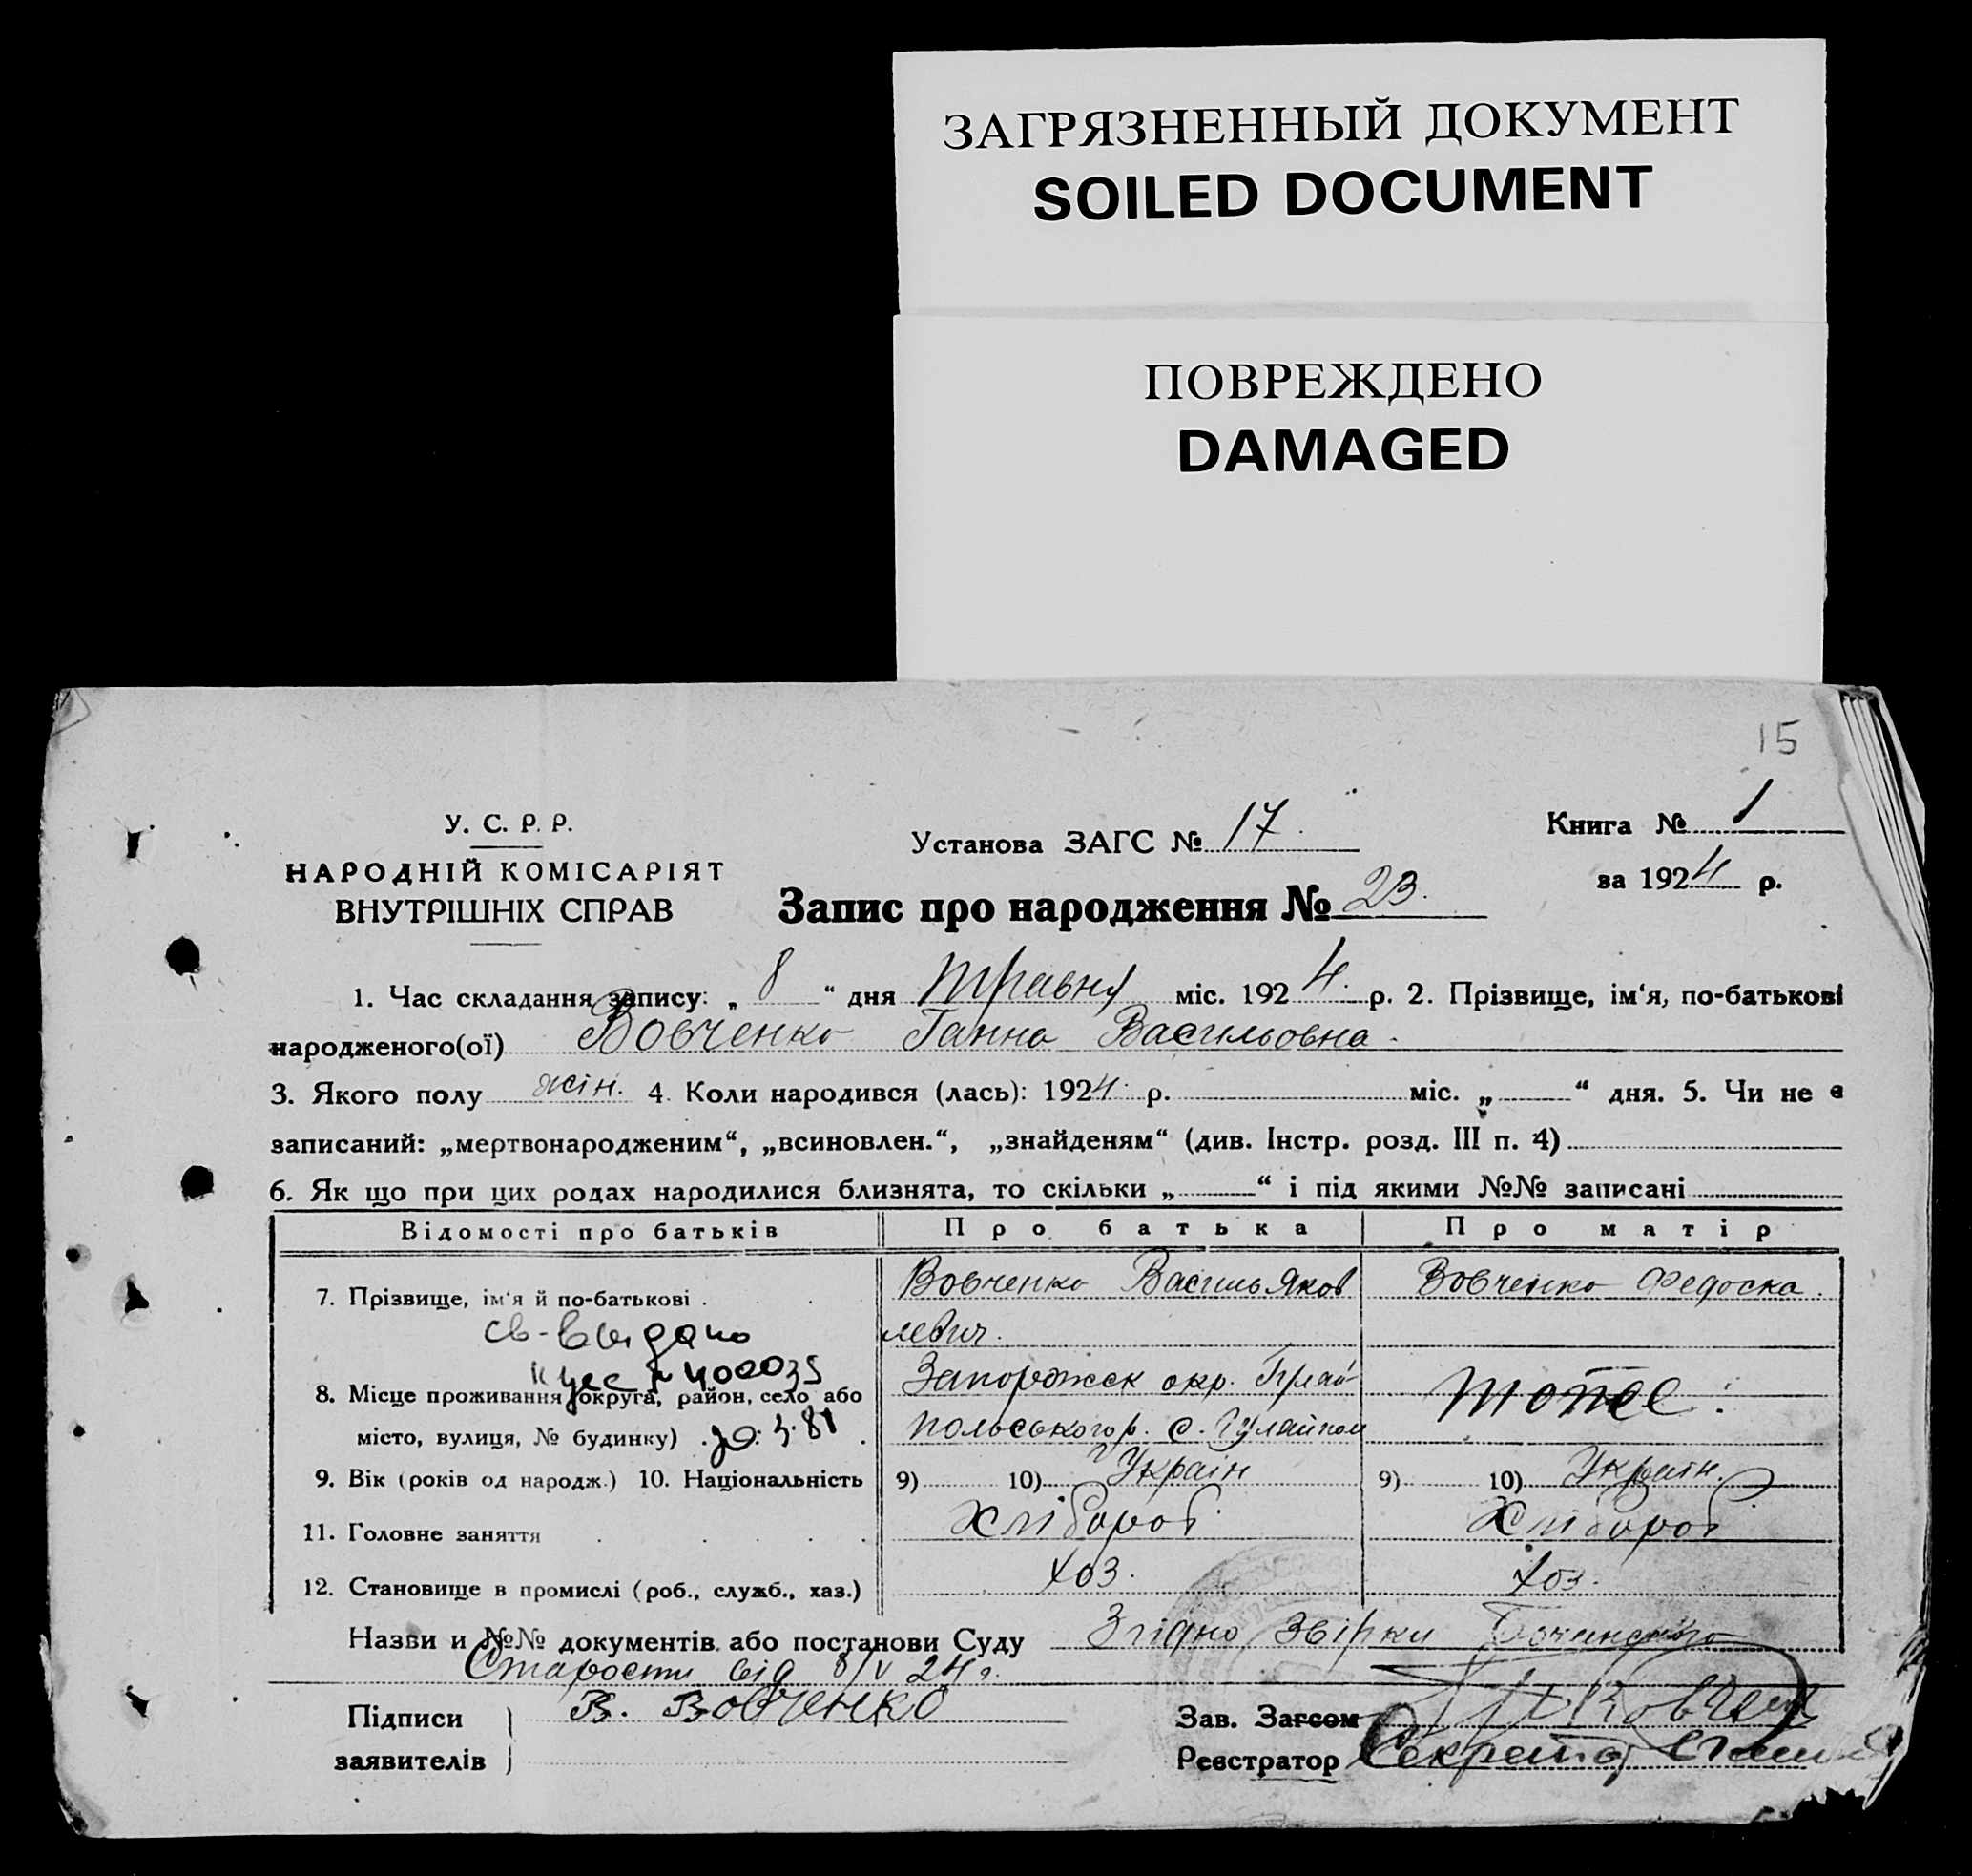 ЗАГРЯЗНЕННЫЙ ДОКУМЕНТ
SOILED DOCUMENT
ПОВРЕЖДЕНО
DAMAGED
15
У. С. Р. Р.
НАРОДНІЙ КОМІСАРІЯТ
ВНУТРІШНІХ СПРАВ
Установа ЗАГС № 17.
Книга № 1
за 1924 р.
Запис про народження № 23.
1. Час складання запису: „ 8 “ дня Травня міс. 1924. р. 2. Прізвище, ім‘я, по-батькові
народженого(ої) Вовченко Ганна Васильовна.
3. Якого полу жін. 4. Коли народився (лась): 1924 р. міс. „ “ дня. 5. Чи не є
записаний: „мертвонародженим“, „всиновлен.“, „знайденям“ (див. Інстр. розд. III п. 4)
6. Як що при цих родах народилися близнята, то скільки „ “ і під якими №№ записані
Відомості про батьків Про батька Про матір
7. Прізвище, ім‘я й по-батькові . Вовченко Василь Яков Вовченко Федоска.
левич.
св-во видано
400035
8. Місце проживання округа, район, село або Запорожск окр.
місто, вулиця, № будинку) польського р. с. Гуляйпол
Тоже:
9. Вік (років од народж.) 10. Національність 9) 10) Україн 9) 10) Україн.
11. Головне заняття Хлібороб. Хлібороб
12. Становище в промислі (роб., служб., хаз.) хоз. хоз.
Назви и №№ документів або постанови Суду Згідно звірки
Старости від 8/V 24 г.
Підписи В. Вовченко
заявителів
Зав. Загсом
Реєстратор Секретар